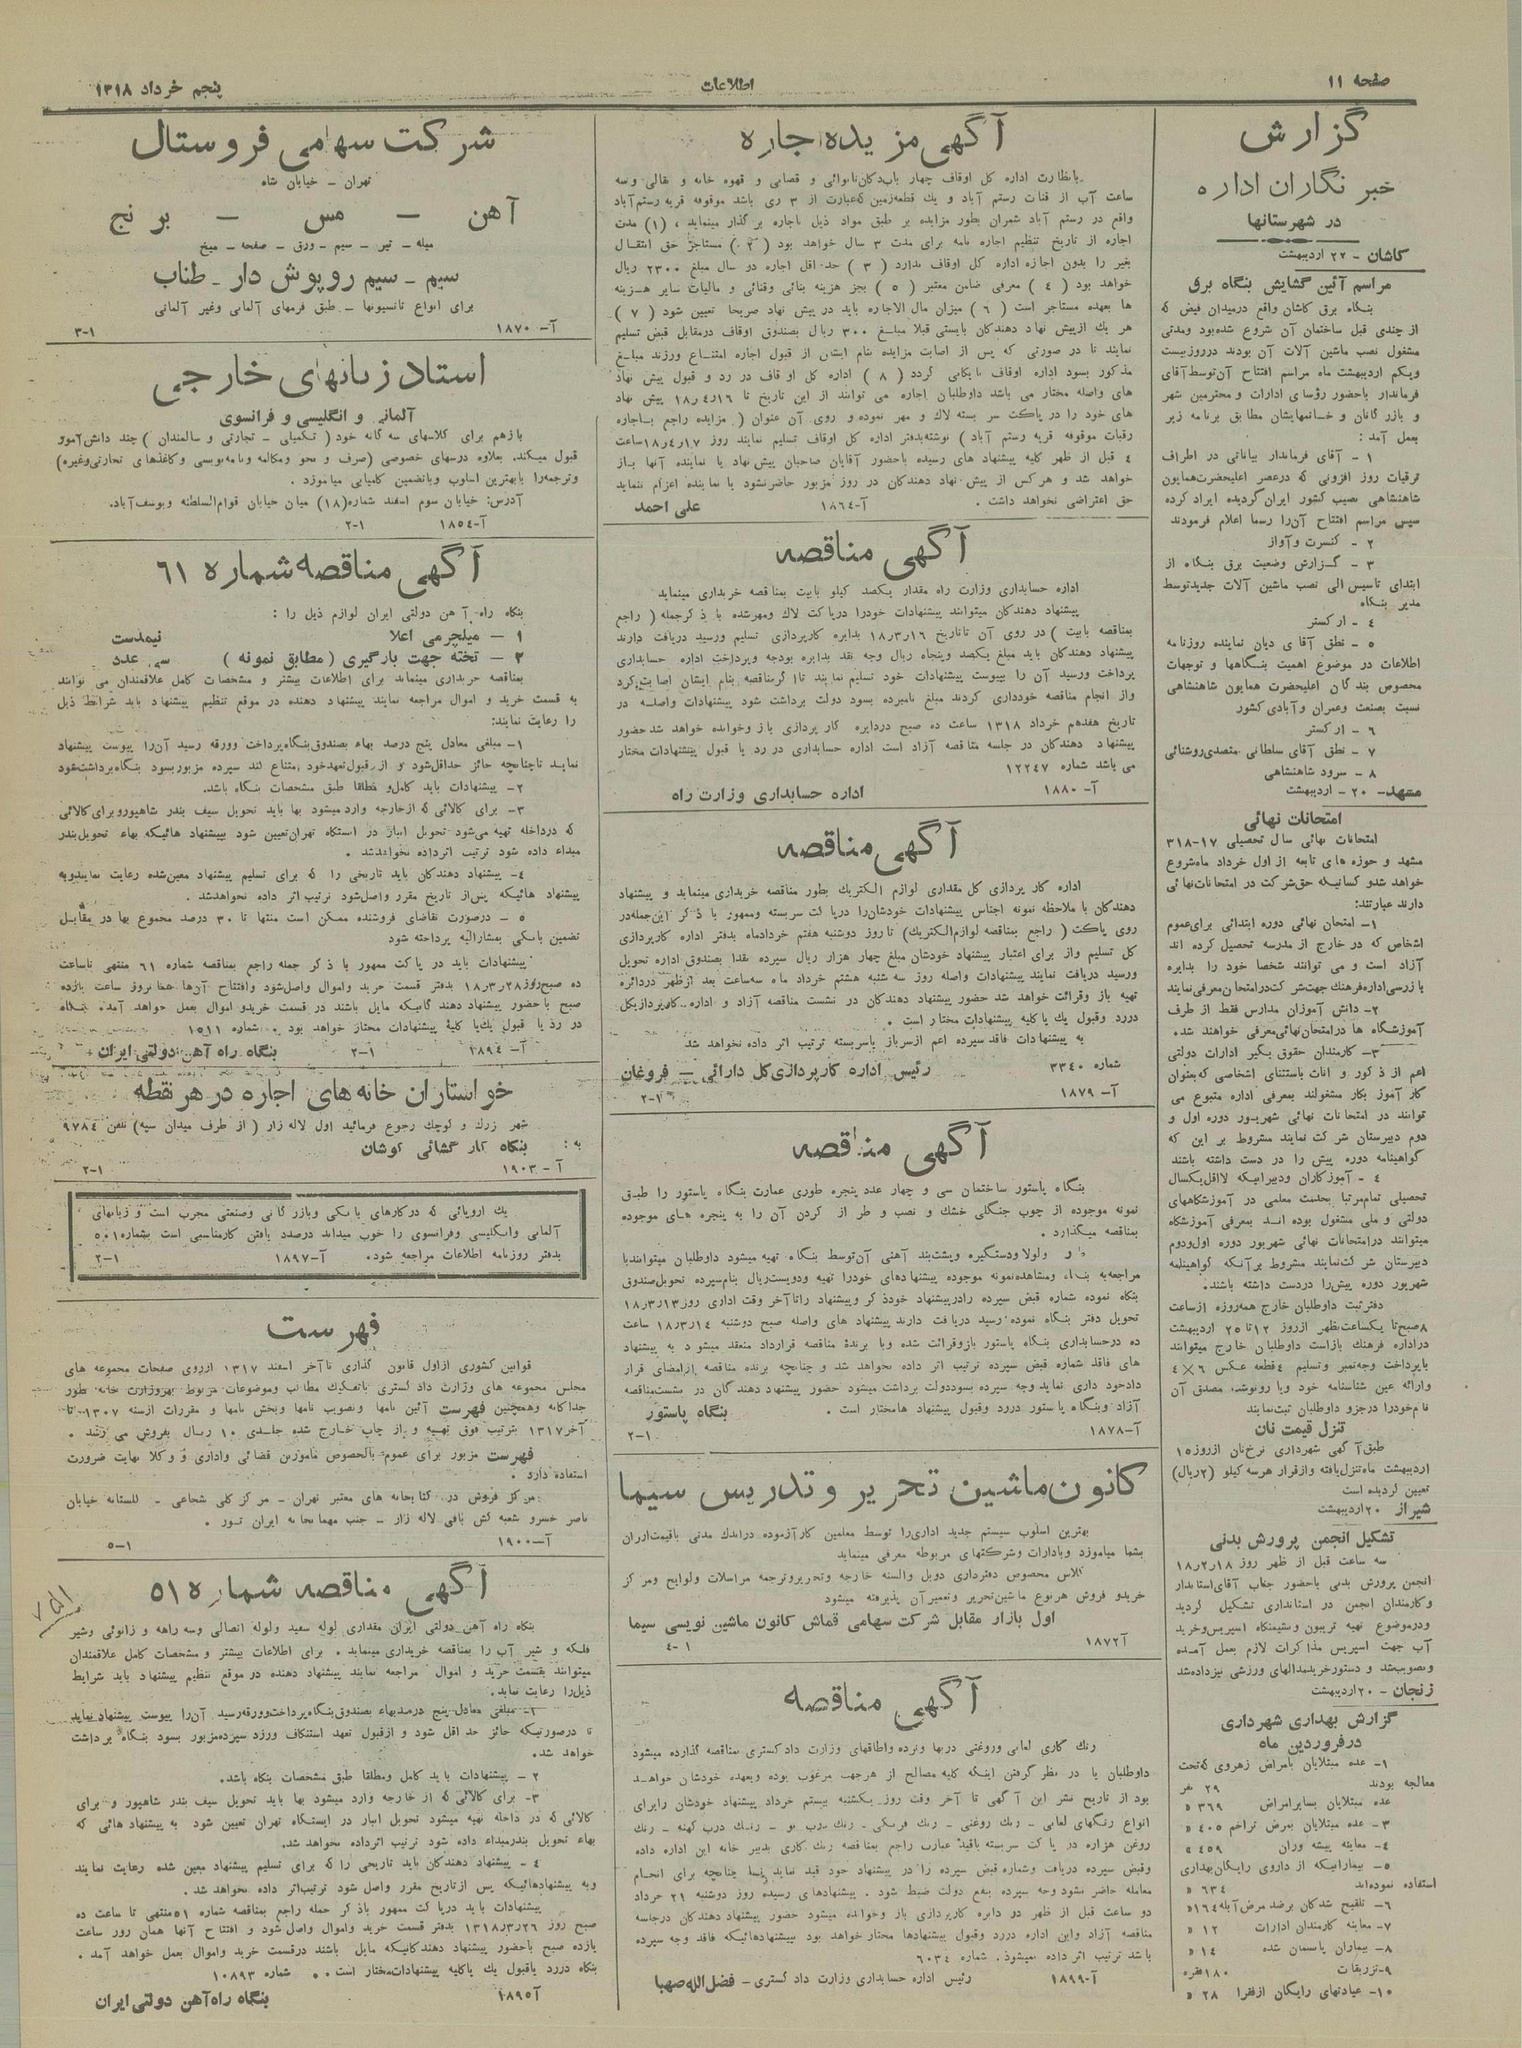 صفحه ۱۱
اطلاعات
پنجم خرداد ۱۳۱۸
گزارش
خبر نگاران اداره
در شهرستانها
کاشان - ۲۲ اردیبهشت
مراسم آئین گشایش بنگاه برق
بنگاه برق کاشان واقع درمیدان فیض که
از چندی قبل ساختمان آن شروع شده بود ومدتی
مشغول نصب ماشین آلات آن بودند درروزبیست
ویکم اردیبهشت ماه مراسم افتتاح آن توسط آقای
فرماندار باحضور رؤسای ادارات و محترمین شهر
و بازرگانان و خانمهایشان مطابق برنامه زیر
بعمل آمد :
۱ - آقای فرماندار بیاناتی در اطراف
ترقیات روز افزونی که درعصر اعلیحضرت همایون
شاهنشاهی نصیب کشور ایران گردیده ایراد کرده
سپس مراسم افتتاح آن را رسما اعلام فرمودند
۲ - کنسرت و آواز
۳ - گزارش وضعیت برق بنگاه از
ابتدای تاسیس الی نصب ماشین آلات جدید توسط
مدیر بنگاه
۴ - ارکستر
۵ - نطق آقای دیان نماینده روزنامه
اطلاعات در موضوع اهمیت بنگاهها و توجهات
مخصوص بندگان اعلیحضرت همایون شاهنشاهی
نسبت بصنعت وعمران و آبادی کشور
۶ - ارکستر
۷ - نطق آقای سلطانی متصدی روشنائی
۸ - سرود شاهنشاهی
مشهد - ۲۰ - اردیبهشت
امتحانات نهائی
امتحانات نهائی سال تحصیلی ۱۷-۳۱۸
مشهد و حوزه های تابعه از اول خرداد ماه شروع
خواهد شد و کسانیکه حق شرکت در امتحانات نهائی
دارند عبارتند:
۱- امتحان نهائی دوره ابتدائی برای عموم
اشخاص که در خارج از مدرسه تحصیل کرده اند
آزاد است و می توانند شخصا خود را بدایره
بازرسی اداره فرهنگ جهت شرکت در امتحان معرفی نمایند
۲- دانش آموزان مدارس فقط از طرف
آموزشگاه ها در امتحان نهائی معرفی خواهند شد.
۳- کارمندان حقوق بگیر ادارات دولتی
اعم از ذکور و اناث باستثنای اشخاصی که بعنوان
کارآموز بکار مشغولند بمعرفی اداره متبوع می
توانند در امتحانات نهائی شهریور دوره اول و
دوم دبیرستان شرکت نمایند مشروط بر این که
گواهینامه دوره پیش را در دست داشته باشند
۴ - آموزگاران ودبیرانیکه لااقل یکسال
تحصیلی تمام مرتبا بخدمت معلمی در آموزشگاههای
دولتی و ملی مشغول بوده اند بمعرفی آموزشگاه
میتوانند در امتحانات نهائی شهریور دوره اول ودوم
دبیرستان شرکت نمایند مشروط بر آنکه گواهینامه
شهریور دوره پیش را دردست داشته باشند.
دفتر ثبت داوطلبان خارج همه روزه از ساعت
۸ صبح تا یکساعت بظهر از روز ۱۲ تا ۲۵ اردیبهشت
در اداره فرهنگ باز است داوطلبان خارج میتوانند
با پرداخت وجه تمبر و تسلیم ۴ قطعه عکس ۶×۴
وارائه عین شناسنامه خود ویا رونوشت مصدق آن
نام خود را در جزو داوطلبان ثبت نمایند
تنزل قیمت نان
طبق آگهی شهرداری نرخ نان از روز ۱۵
اردیبهشت ماه تنزل یافته و از قرار هر سه کیلو (۲ ریال)
تعیین گردیده است
شیراز ۲۰ اردیبهشت
تشکیل انجمن پرورش بدنی
سه ساعت قبل از ظهر روز ۱۸ر۲ر۱۸
انجمن پرورش بدنی باحضور جناب آقای استاندار
وکارمندان انجمن در استانداری تشکیل گردید
ودر موضوع تهیه تریبون و نشیمنگاه اسپریس و خرید
آب جهت اسپریس مذاکرات لازم بعمل آمده
و تصویب شد و دستور خرید مدالهای ورزشی نیز داده شد
زنجان - ۲۰ اردیبهشت
گزارش بهداری شهرداری
در فروردین ماه
۱- عده مبتلایان بامراض زهروی که تحت
معالجه بودند ۲۹ نفر
عده مبتلایان بسایر امراض ۳۶۹ »
۳- عده مبتلایان بمرض تراخم ۴۰۵ »
۴- معاینه پیشه وران ۴۵۹ »
۵- بیمارانیکه از داروی رایگان بهداری
استفاده نموده اند ۶۳۴ »
۶- تلقیح شدگان بر ضد مرض آبله ۱۶۴ »
۷- معاینه کارمندان ادارات ۱۲ »
۸- بیماران پانسمان شده ۱۴ »
۹- تزریقات ۱۸۰ فقره
۱۰- عیادتهای رایگان از فقرا ۲۸ »
آگهی مزیده اجاره
بانظارت اداره کل اوقاف چهار باب دکان نانوائی و قصابی و قهوه خانه و بقالی و سه
ساعت آب از قنات رستم آباد و یک قطعه زمین که عبارت از ۳ ری باشد موقوفه قریه رستم آباد
واقع در رستم آباد شمران بطور مزایده بر طبق مواد ذیل باجاره بر گذار مینماید ، (۱) مدت
اجاره از تاریخ تنظیم اجاره نامه برای مدت ۳ سال خواهد بود (۲) مستاجر حق انتقال
بغیر را بدون اجازه اداره کل اوقاف ندارد (۳) حد اقل اجاره دو سال مبلغ ۲۳۰۰ ریال
خواهد بود (۴) معرفی ضامن معتبر (۵) بجز هزینه بنائی وقنائی و مالیات سایر هزینه
ها بعهده مستاجر است (۶) میزان مال الاجاره باید در پیش نهاد صریحا تعیین شود (۷)
هر یک از پیش نهاد دهندگان بایستی قبلا مبلغ ۳۰۰ ریال بصندوق اوقاف در مقابل قبض تسلیم
نمایند تا در صورتی که پس از اصابت مزایده بنام ایشان از قبول اجاره امتناع ورزند مبلغ
مذکور بسود اداره اوقاف بایگانی گردد (۸) اداره کل اوقاف در رد و قبول پیش نهاد
های واصله مختار می باشد داوطلبان اجاره می توانند از این تاریخ تا ۱۶ر۴ر۱۸ پیش نهاد
های خود را در پاکت سر بسته لاک و مهر نموده و روی آن عنوان ( مزایده راجع باجاره
رقبات موقوفه قریه رستم آباد ) نوشته بدفتر اداره کل اوقاف تسلیم نمایند روز ۱۷ر۴ر۱۸ ساعت
۴ قبل از ظهر کلیه پیشنهاد های رسیده باحضور آقایان صاحبان پیش نهاد یا نماینده آنها باز
خواهد شد و هر کس از پیش نهاد دهندگان در روز مزبور حاضر نشود یا نماینده اعزام ننماید
حق اعتراضی نخواهد داشت . آ-۱۸۶۴ علی احمد
آگهی مناقصه
اداره حسابداری وزارت راه مقدار یکصد کیلو بابیت بمناقصه خریداری مینماید
پیشنهاد دهندگان میتوانند پیشنهادات خود را در پاکت لاک و مهر شده با ذکر جمله ( راجع
بمناقصه بابیت ) در روی آن تا تاریخ ۱۶ر۳ر۱۸ بدایره کارپردازی تسلیم ورسید دریافت دارند
پیشنهاد دهندگان باید مبلغ یکصد وپنجاه ریال وجه نقد بدایره بودجه وپرداخت اداره حسابداری
پرداخت ورسید آن را بپیوست پیشنهادات خود تسلیم نمایند تا اگر مناقصه بنام ایشان اصابت کرد
واز انجام مناقصه خودداری کردند مبلغ نامبرده بسود دولت برداشت شود پیشنهادات واصله در
تاریخ هفدهم خرداد ۱۳۱۸ ساعت ده صبح در دایره کار پردازی باز و خوانده خواهد شد حضور
پیشنهاد دهندگان در جلسه مناقصه آزاد است اداره حسابداری در رد یا قبول پیشنهادات مختار
می باشد شماره ۱۲۲۴۷
آ-۱۸۸۰ اداره حسابداری وزارت راه
آگهی مناقصه
اداره کار پردازی کل مقداری لوازم الکتریک بطور مناقصه خریداری مینماید و پیشنهاد
دهندگان با ملاحظه نمونه اجناس پیشنهادات خودشان را در پاکت سربسته وممهور با ذکر این جمله در
روی پاکت ( راجع بمناقصه لوازم الکتریک) تا روز دوشنبه هفتم خرداد ماه بدفتر اداره کارپردازی
کل تسلیم واز برای اعتبار پیشنهاد خودشان مبلغ چهار هزار ریال سپرده نقدا بصندوق اداره تحویل
ورسید دریافت نمایند پیشنهادات واصله روز سه شنبه هشتم خرداد ماه سه ساعت بعد از ظهر در دائره
تهیه باز وقرائت خواهد شد حضور پیشنهاد دهندگان در نشست مناقصه آزاد و اداره کارپردازی کل
در رد و قبول یک یا کلیه پیشنهادات مختار است .
به پیشنهادات فاقد سپرده اعم از سرباز یا سربسته ترتیب اثر داده نخواهد شد
شماره ۳۳۴۰ رئیس اداره کارپردازی کل دارائی - فروغان
آ-۱۸۷۹ ۲-۱
آگهی مناقصه
بنگاه پاستور ساختمان سی و چهار عدد پنجره طوری عمارت بنگاه پاستور را طبق
نمونه موجوده از چوب جنگلی خشک و نصب و طراز کردن آن را به پنجره های موجوده
بمناقصه میگذارد .
ولولا ودستگیره وپشت بند آهنی آن توسط بنگاه تهیه میشود داوطلبان میتوانند با
مراجعه به بنگاه ومشاهده نمونه موجوده پیشنهادهای خود را تهیه ودویست ریال بنام سپرده تحویل صندوق
بنگاه نموده شماره قبض سپرده را در پیشنهاد خود ذکر و پیشنهاد را تا آخر وقت اداری روز ۱۳ر۳ر۱۸
تحویل دفتر بنگاه نموده رسید دریافت دارند پیشنهاد های واصله صبح دوشنبه ۱۴ر۳ر۱۸ ساعت
ده در حسابداری بنگاه پاستور باز و قرائت شده وبا برنده مناقصه قرارداد منعقد میشود به پیشنهاد
های فاقد شماره قبض سپرده ترتیب اثر داده نخواهد شد و چنانچه برنده مناقصه از امضای قرار
داد خود داری نماید وجه سپرده بسود دولت برداشت میشود حضور پیشنهاد دهندگان در نشست مناقصه
آزاد وبنگاه پاستور در رد وقبول پیشنهاد ها مختار است . بنگاه پاستور
آ-۱۸۷۸ ۲-۱
کانون ماشین تحریر و تدریس سیما
بهترین اسلوب سیستم جدید اداری را توسط معلمین کارآزموده در اندک مدتی باقیمت ارزان
بشما میآموزد وبادارات وشرکتهای مربوطه معرفی مینماید
کلاس مخصوص دفترداری دوبل والسنه خارجه وتحریر وترجمه مراسلات ولوایح ومرکز
خرید و فروش هر نوع ماشین تحریر وتعمیر آن پذیرفته میشود
اول بازار مقابل شرکت سهامی قماش کانون ماشین نویسی سیما
آ ۱۸۷۲ ۴-۱
آگهی مناقصه
رنگ کاری لعابی وروغنی دربها ونرده واطاقهای وزارت دادگستری بمناقصه گذارده میشود
داوطلبان با در نظر گرفتن اینکه کلیه مصالح از هر جهت مرغوب بوده وبعهده خودشان خواهد
بود از تاریخ نشر این آگهی تا آخر وقت روز یکشنبه بیستم خرداد پیشنهاد خودشان را برای
انواع رنگهای لعابی - رنگ روغنی - رنگ فرنگی - رنگ درب نو - رنگ درب کهنه - رنگ
روغن هزاره در پاکت سربسته باقید عبارت راجع بمناقصه رنگ کاری بدبیر خانه این اداره داده
وقبض سپرده دریافت وشماره قبض سپرده را در پیشنهاد خود قید نماید چنانچه برای انجام
معامله حاضر نشود وجه سپرده بنفع دولت ضبط شود . پیشنهادهای رسیده روز دوشنبه ۲۱ خرداد
دو ساعت قبل از ظهر در دایره کارپردازی باز وخوانده میشود حضور پیشنهاد دهندگان در جلسه
مناقصه آزاد واین اداره در رد وقبول پیشنهادها مختار خواهد بود بپیشنهادهائیکه فاقد وجه سپرده
باشد ترتیب اثر داده نمیشود. شماره ۶۰۳۴
آ-۱۸۹۹ رئیس اداره حسابداری وزارت دادگستری - فضل الله صهبا
شرکت سهامی فروستال
تهران - خیابان شاه
آهن - مس - برنج
میله - تیر - سیم - ورق - صفحه - میخ
سیم - سیم روپوش دار - طناب
برای انواع تانسیونها - طبق فرمهای آلمانی وغیر آلمانی
آ-۱۸۷۰ ۳-۱
استاد زبانهای خارجی
آلمانی و انگلیسی و فرانسوی
بازهم برای کلاسهای سه گانه خود ( تکمیلی - تجارتی و سالمندان ) چند دانش آموز
قبول میکند. بعلاوه درسهای خصوصی (صرف و نحو ومکالمه ونامه نویسی وکاغذهای تجارتی وغیره)
وترجمه را بابهترین اسلوب وباتضمین کامیابی میآموزد .
آدرس: خیابان سوم اسفند شماره (۱۸) میان خیابان قوام السلطنه ویوسف آباد.
آ-۱۸۵۴ ۲-۱
آگهی مناقصه شماره ۶۱
بنگاه راه آهن دولتی ایران لوازم ذیل را :
۱ - میلچرمی اعلا نیمدست
۲ - تخته جهت بارگیری (مطابق نمونه ) سی عدد
بمناقصه خریداری مینماید برای اطلاعات بیشتر و مشخصات کامل علاقمندان می توانند
به قسمت خرید و اموال مراجعه نمایند پیشنهاد دهنده در موقع تنظیم پیشنهاد باید شرائط ذیل
را رعایت نمایند:
۱- مبلغی معادل پنج درصد بهاء بصندوق بنگاه پرداخت وورقه رسید آن را بپیوست پیشنهاد
نماید تا چنانچه حائز حداقل شود و از قبول تعهد خود امتناع کند سپرده مزبور بسود بنگاه برداشت شود
۲- پیشنهادات باید کامل و مطلقا طبق مشخصات بنگاه باشد.
۳- برای کالائی که از خارجه وارد میشود بها باید تحویل سیف بندر شاهپور و برای کالائی
که در داخله تهیه می شود تحویل انبار در ایستگاه تهران تعیین شود بپیشنهاد هائیکه بهاء تحویل بندر
مبداء داده شود ترتیب اثر داده نخواهد شد .
۴- پیشنهاد دهندگان باید تاریخی را که برای تسلیم پیشنهاد معین شده رعایت نمایند و به
پیشنهاد هائیکه پس از تاریخ مقرر واصل شود ترتیب اثر داده نخواهد شد.
۵ - در صورت تقاضای فروشنده ممکن است منتها تا ۳۰ درصد مجموع بها در مقابل
تضمین بانکی بمشارالیه پرداخته شود
پیشنهادات باید در پاکت ممهور با ذکر جمله راجع بمناقصه شماره ۶۱ منتهی تا ساعت
ده صبح روز ۲۸ر۳ر۱۸ بدفتر قسمت خرید واموال واصل شود وافتتاح آن ها همان روز ساعت یازده
صبح با حضور پیشنهاد دهندگانیکه مایل باشند در قسمت خرید و اموال بعمل خواهد آمد. بنگاه
در رد یا قبول یک یا کلیه پیشنهادات مختار خواهد بود . شماره ۱۵۱۱
آ-۱۸۹۴ ۲-۱ بنگاه راه آهن دولتی ایران
خواستاران خانه های اجاره در هر نقطه
شهر بزرگ و کوچک رجوع فرمائید اول لاله زار ( از طرف میدان سپه) تلفن ۹۷۸۴
به : بنگاه کار گشائی کوشان
آ-۱۹۰۳ ۲-۱
یک اروپائی که در کارهای بانکی وبازرگانی وصنعتی مجرب است و زبانهای
آلمانی وانگلیسی وفرانسوی را خوب میداند درصدد یافتن کار مناسبی است بشماره ۵۰۱
بدفتر روزنامه اطلاعات مراجعه شود. آ-۱۸۹۷ ۲-۱
فهرست
قوانین کشوری از اول قانون گذاری تا آخر اسفند ۱۳۱۷ از روی صفحات مجموعه های
مجلس مجموعه های وزارت دادگستری باتفکیک مطالب وموضوعات مربوط بهر وزارت خانه بطور
جداگانه وهمچنین فهرست آئین نامها وتصویب نامها وبخش نامها و مقررات از سنه ۱۳۰۷ تا
آخر ۱۳۱۷ بترتیب فوق تهیه و از چاپ خارج شده جلدی ۱۰ ریال بفروش می رسد .
فهرست مزبور برای عموم بالخصوص مامورین قضائی واداری و وکلا نهایت ضرورت
استفاده دارد .
مرکز فروش در کتابخانه های معتبر تهران - مرکز کلی شعاعی - گلستانه خیابان
ناصر خسرو شعبه کش بافی لاله زار - جنب مهمانخانه ایران تور .
آ-۱۹۰۰ ۵-۱
آگهی مناقصه شماره ۵۱
بنگاه راه آهن دولتی ایران مقداری لوله سفید ولوله اتصالی وسه راهه و زانوئی وشیر
فلکه و شیر آب را بمناقصه خریداری مینماید . برای اطلاعات بیشتر و مشخصات کامل علاقمندان
میتوانند بقسمت خرید و اموال مراجعه نمایند پیشنهاد دهنده در موقع تنظیم پیشنهاد باید شرایط
ذیل را رعایت نماید.
۱- مبلغی معادل پنج درصد بهاء بصندوق بنگاه پرداخت وورقه رسید آن را بپیوست پیشنهاد نماید
تا درصورتیکه حائز حد اقل شود و از قبول تعهد استنکاف ورزد سپرده مزبور بسود بنگاه برداشت
خواهد شد.
۲ - پیشنهادات باید کامل ومطلقا طبق مشخصات بنگاه باشد.
۳- برای کالائی که از خارجه وارد میشود بها باید تحویل سیف بندر شاهپور و برای
کالائی که در داخله تهیه میشود تحویل انبار در ایستگاه تهران تعیین شود به پیشنهاد هائی که
بهاء تحویل بندر مبداء داده شود ترتیب اثر داده نخواهد شد.
۴ - پیشنهاد دهندگان باید تاریخی را که برای تسلیم پیشنهاد معین شده رعایت نمایند
وبه پیشنهادهائیکه پس از تاریخ مقرر واصل شود ترتیب اثر داده نخواهد شد .
پیشنهادات باید در پاکت ممهور باذکر جمله راجع بمناقصه شماره ۵۱ منتهی تا ساعت ده
صبح روز ۲۶ر۳ر۱۳۱۸ بدفتر قسمت خرید واموال واصل شود و افتتاح آنها همان روز ساعت
یازده صبح باحضور پیشنهاد دهندگانیکه مایل باشند در قسمت خرید واموال بعمل خواهد آمد .
بنگاه در رد یا قبول یک یا کلیه پیشنهادات مختار است . شماره ۱۰۸۹۳
آ ۱۸۹۵ بنگاه راه آهن دولتی ایران